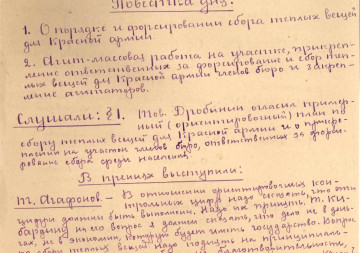 Повестка дня:
1. О порядке и форсировании сбора теплых вещей
для Красной армии.
2. Агит-массовая работа на участке, прикреп-
ление ответственных за форсирование и сбор теп-
лых вещей для Красной армии членов бюро и закреп-
ление агитаторов.
Слушали: §1. Тов. Дробинин огласил пример-
ный (ориентировочный) план по
сбору теплых вещей для Красной армии и о прикре-
плении на участок членов бюро, ответственных за форси-
рование сбора среди населения.
В прениях выступили:
т. Агафонов. - В отношении ориентировочных кон-
трольных цифр надо сказать, что эти
цифры должны быть выполнены, надо их принять, т. Ки-
на его вопрос я должен сказать, что дело не в день-
гах, не в экономии, которую будет иметь государство. Вопрос
сбору теплых вещей надо